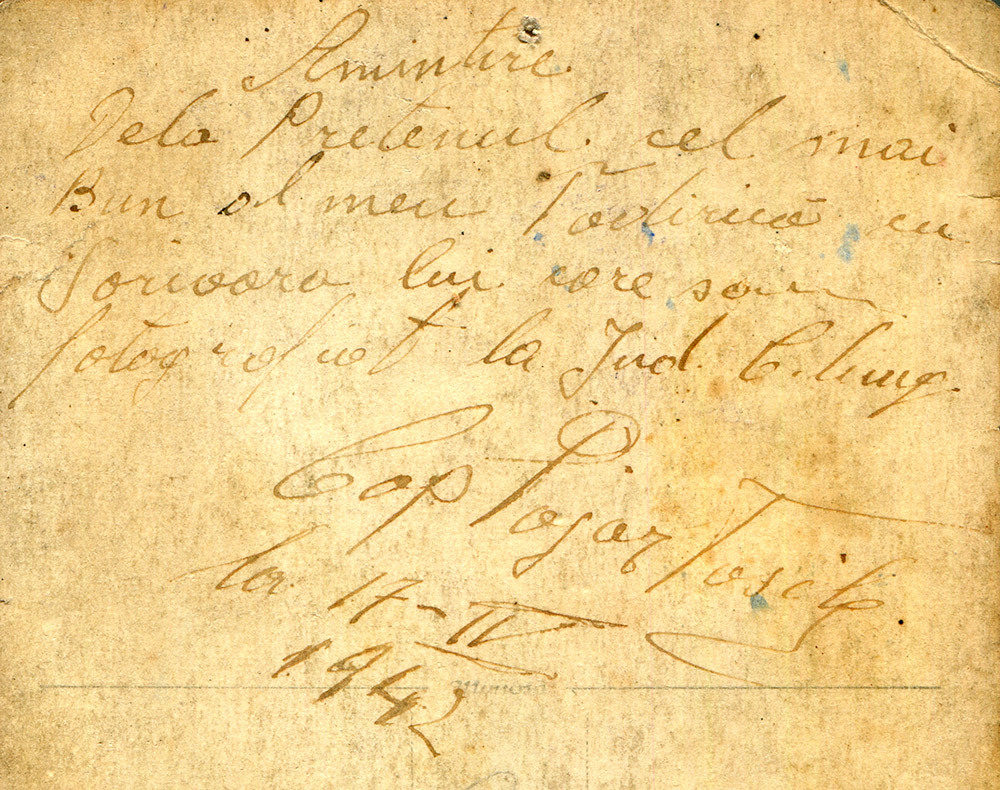 Amintire
Dela Pretenul cel mai
Bun al meu Todirică cu
Sorioara lui care sau
fotografiet la Jud. C.lung.
Cap Pojar Vasile.
la 17-IV
1942